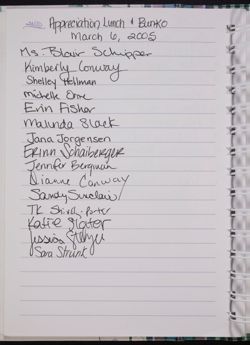 Appreciation Lunch & Bunko
March 6, 2005
Ms. Blair Schipper
Kimberly Conway
Shelley Hellman
Michelle
Erin Fisher
Malinda Black
Jana Jorgensen
Erinn Schaiberger
Jennifer Bergman
Dianne Conway
Sandy Sinclair
TK
Katie Slater
Jessica
Sara Strunk